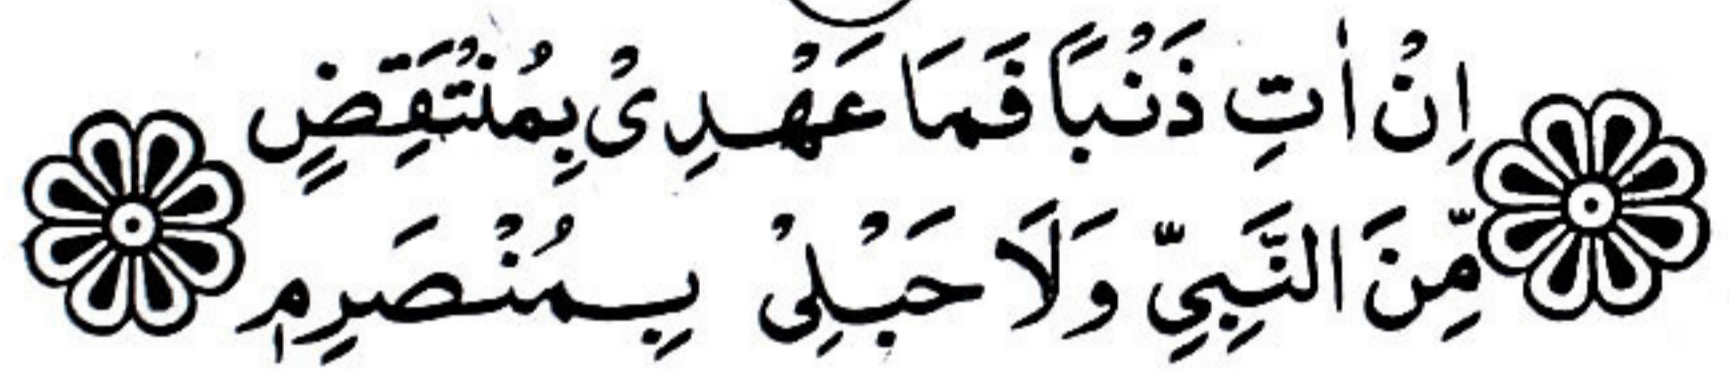 اِنْ اٰتِ ذَنْۢبًا فَمَا عَهْدِیْ بِمُنْتَقِضٍ
مِّنَ النَّبِیِّ وَلَا حَبْلِیْ بِمُنْصَرِمٖ